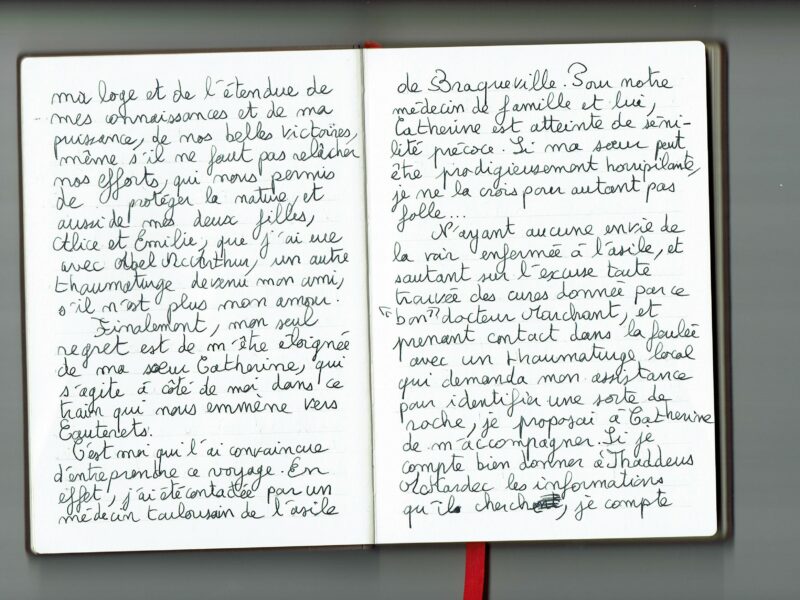 ma loge et de l'étendue de
mes connaissances et de ma
puissance, de nos belles victoires,
même s'il ne faut pas relâcher
nos efforts, qui nous permis
de protéger la nature, et
aussi de mes deux filles,
Alice et Emilie, que j'ai eue
avec Abel McArthur, un autre
thaumaturge devenu mon ami,
s'il n'est plus mon amour.
Finalement, mon seul
regret est de m'être éloignée
de ma sœur Catherine, qui
s'agite à côté de moi dans ce
train qui nous emmène vers
Cauterets.
C'est moi qui l'ai convaincue
d'entreprendre ce voyage. En
effet, j'ai été contactée par un
médecin toulousain de l'asile
de Braqueville. Pour notre
médecin de famille et lui,
Catherine est atteinte de séni-
lité précoce. Si ma sœur peut
être prodigieusement horripilante,
je ne la crois pour autant pas
folle...
N'ayant aucune envie de
la voir enfermée à l'asile, et
sautant sur l'excuse toute
trouvée des cures donnée par ce
"bon" docteur Marchant, et
prenant contact dans la foulée
avec un thaumaturge local
qui demanda mon assistance
pour identifier une sorte de
roche, je proposai à Catherine
de m'accompagner. Si je
compte bien donner à Thaddeus
les informations
qu'il cherche, je compte